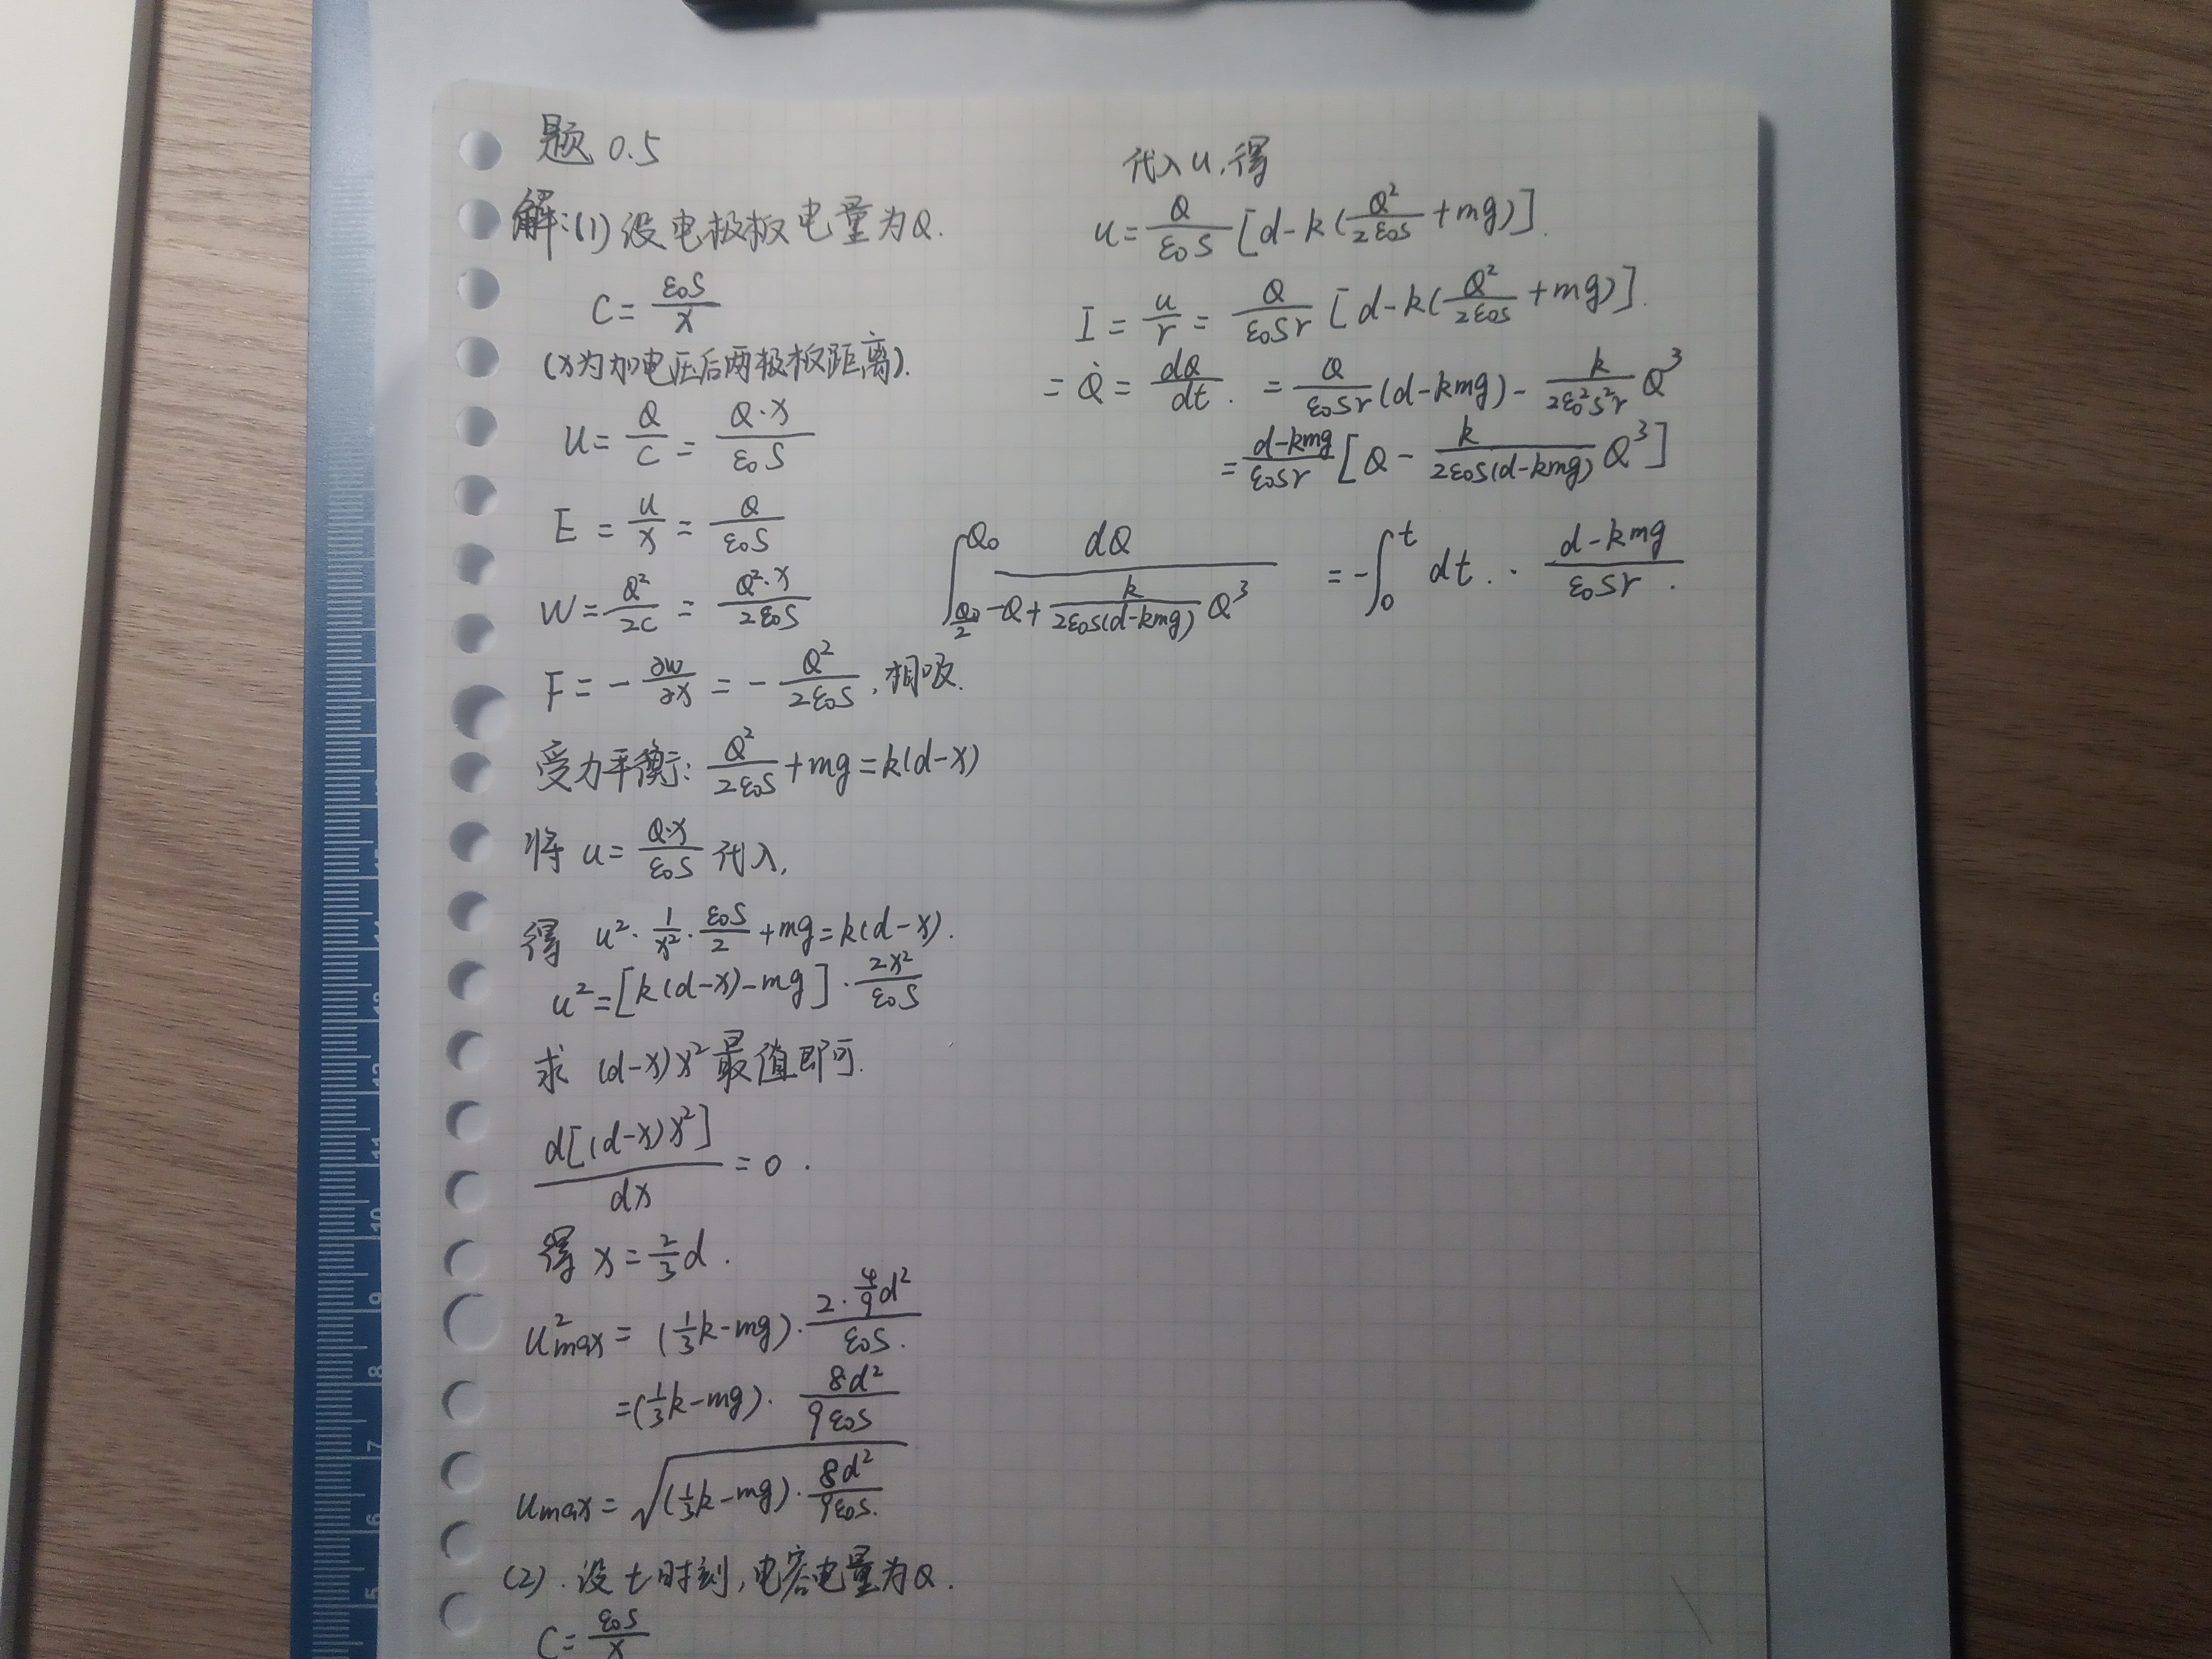 题 0.5
解:(1) 设电极板电量为Q.
C = \frac{ε_0 S}{x}
(x为加电压后两极板距离).
u = \frac{Q}{C} = \frac{Q·x}{ε_0 S}
E = \frac{u}{x} = \frac{Q}{ε_0 S}
W = \frac{Q^2}{2C} = \frac{Q^2·x}{2ε_0 S}
F = -\frac{∂w}{∂x} = -\frac{Q^2}{2ε_0 S}, 相吸.
受力平衡: \frac{Q^2}{2ε_0 S} + mg = k(d-x)
将 u = \frac{Q·x}{ε_0 S} 代入,
得 u^2·\frac{1}{x^2}·\frac{ε_0 S}{2} + mg = k(d-x).
u^2 = [k(d-x)-mg]·\frac{2x^2}{ε_0 S}
求 (d-x)x^2 最值即可.
\frac{d[(d-x)x^2]}{dx} = 0.
得 x = \frac{2}{3}d.
u_{max}^2 = (\frac{1}{3}k-mg)·\frac{2·\frac{4}{9}d^2}{ε_0 S.}
= (\frac{1}{3}k-mg)·\frac{8d^2}{9ε_0 S}
u_{max} = \sqrt{(\frac{1}{3}k-mg)·\frac{8d^2}{9ε_0 S.}}
(2). 设 t 时刻, 电容电量为Q.
C = \frac{ε_0 S}{x}
代入 u, 得
u = \frac{Q}{ε_0 S}[d-k(\frac{Q^2}{2ε_0 S}+mg)].
I = \frac{u}{r} = \frac{Q}{ε_0 S r}[d-k(\frac{Q^2}{2ε_0 S}+mg)].
= \dot{Q} = \frac{dQ}{dt}. = \frac{Q}{ε_0 S r}(d-kmg) - \frac{k}{2ε_0^2 S^2 r}Q^3
= \frac{d-kmg}{ε_0 S r}[Q - \frac{k}{2ε_0 S(d-kmg)}Q^3]
\int_{\frac{Q_0}{2}}^{Q_0} \frac{dQ}{-Q+\frac{k}{2ε_0 S(d-kmg)}Q^3} = -\int_0^t dt.·\frac{d-kmg}{ε_0 S r}.